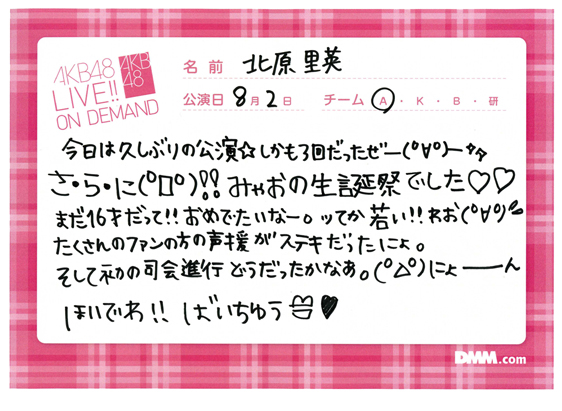 AKB48
LIVE!!
ON DEMAND
AKB
48
名前 北原里英
公演日 8月2日 チーム A・K・B・研
今日は久しぶりの公演☆しかも3回だったぜー(°∀°)ー☆☆
さ・ら・に(°口°)!! みゃおの生誕祭でした♡♡
まだ16才だって!! おめでたいなー。ってか若い!! わお(°∀°)
たくさんのファンの方の声援がステキだったにょ。
そして私の司会進行どうだったかなぁ。(°△°)にょーーん
ほいでわ!! ばいちゅう ♥
DMM.com